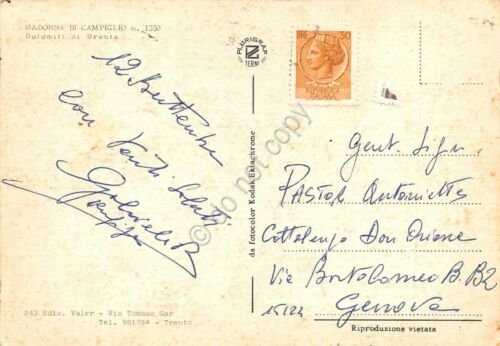 MADONNA DI CAMPIGLIO m. 1550
Dolomiti di Brenta
PLURIGRAF
TERNI
LIRE 30
REPUBBLICA
ITALIANA
12 Settembre
con tanti saluti
Gent. Sign.
PASTOR Antonietta
Cottolengo Don Orione
Via Bortolomeo B. B2
15124 Genova
da fotocolor Kodak Ektachrome
do not copy
243 Ediz. Valer - Via Tomaso Gar
Tel. 981784 - Trento
Riproduzione vietata